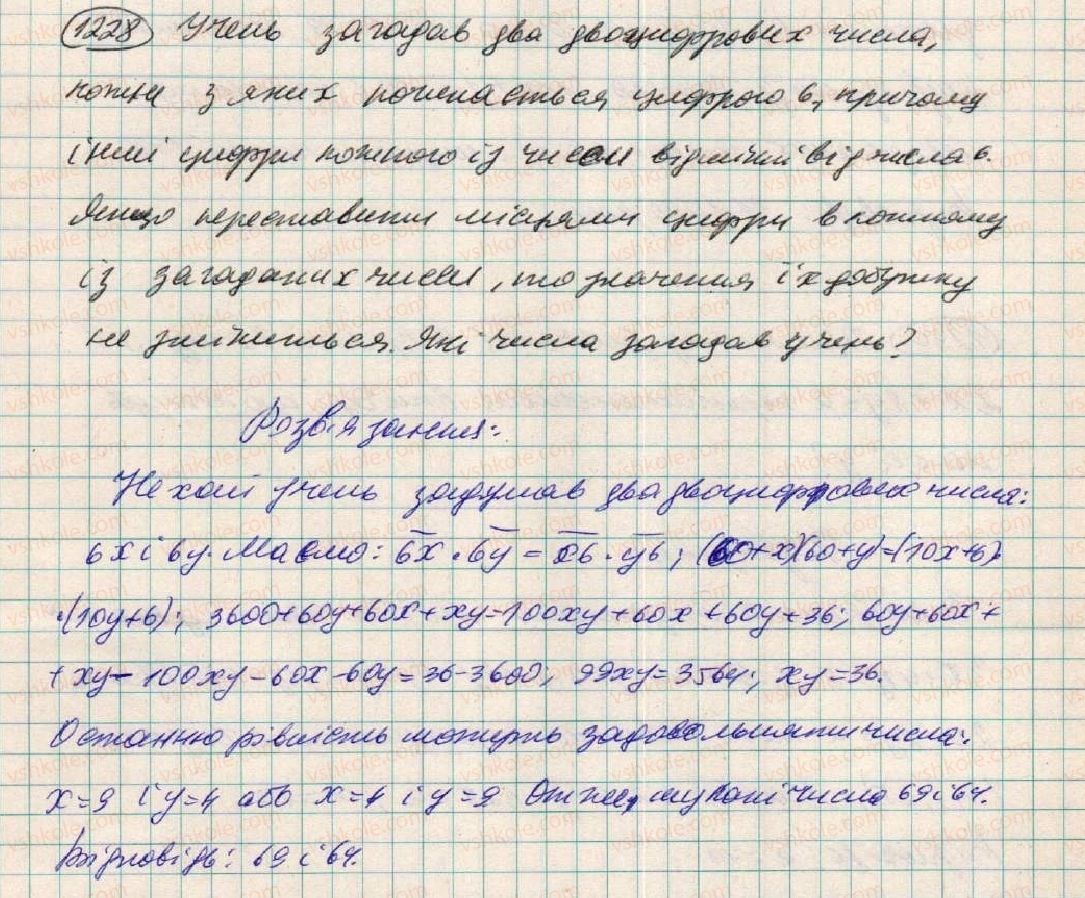 1228 Учень загадав два двоцифрових числа,
кожне з яких починається цифрою 6, причому
інші цифри кожного із чисел відмінні від числа 6.
Якщо переставити місцями цифри в кожному
із загаданих чисел, то значення їх добутку
не зміниться. Які числа загадав учень?
Розв'язання:
Нехай учень задумав два двоцифрових числа:
6x і 6y. Маємо: 6x · 6y = x6 · y6; (60+x)(60+y)=(10x+6)·
·(10y+6); 3600+60y+60x+xy=100xy+60x+60y+36; 60y+60x+
+xy-100xy-60x-60y=36-3600; 99xy=3564; xy=36.
Останню рівність можуть задовольняти числа:
x=9 і y=4 або x=4 і y=9 Отже, шукані числа 69 і 64.
Відповідь: 69 і 64.